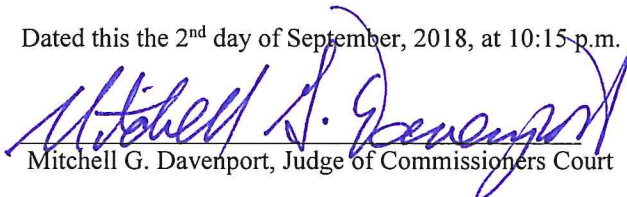 Dated this the 2nd day of September, 2018, at 10:15 p.m.
Mitchell G. Davenport
Mitchell G. Davenport, Judge of Commissioners Court